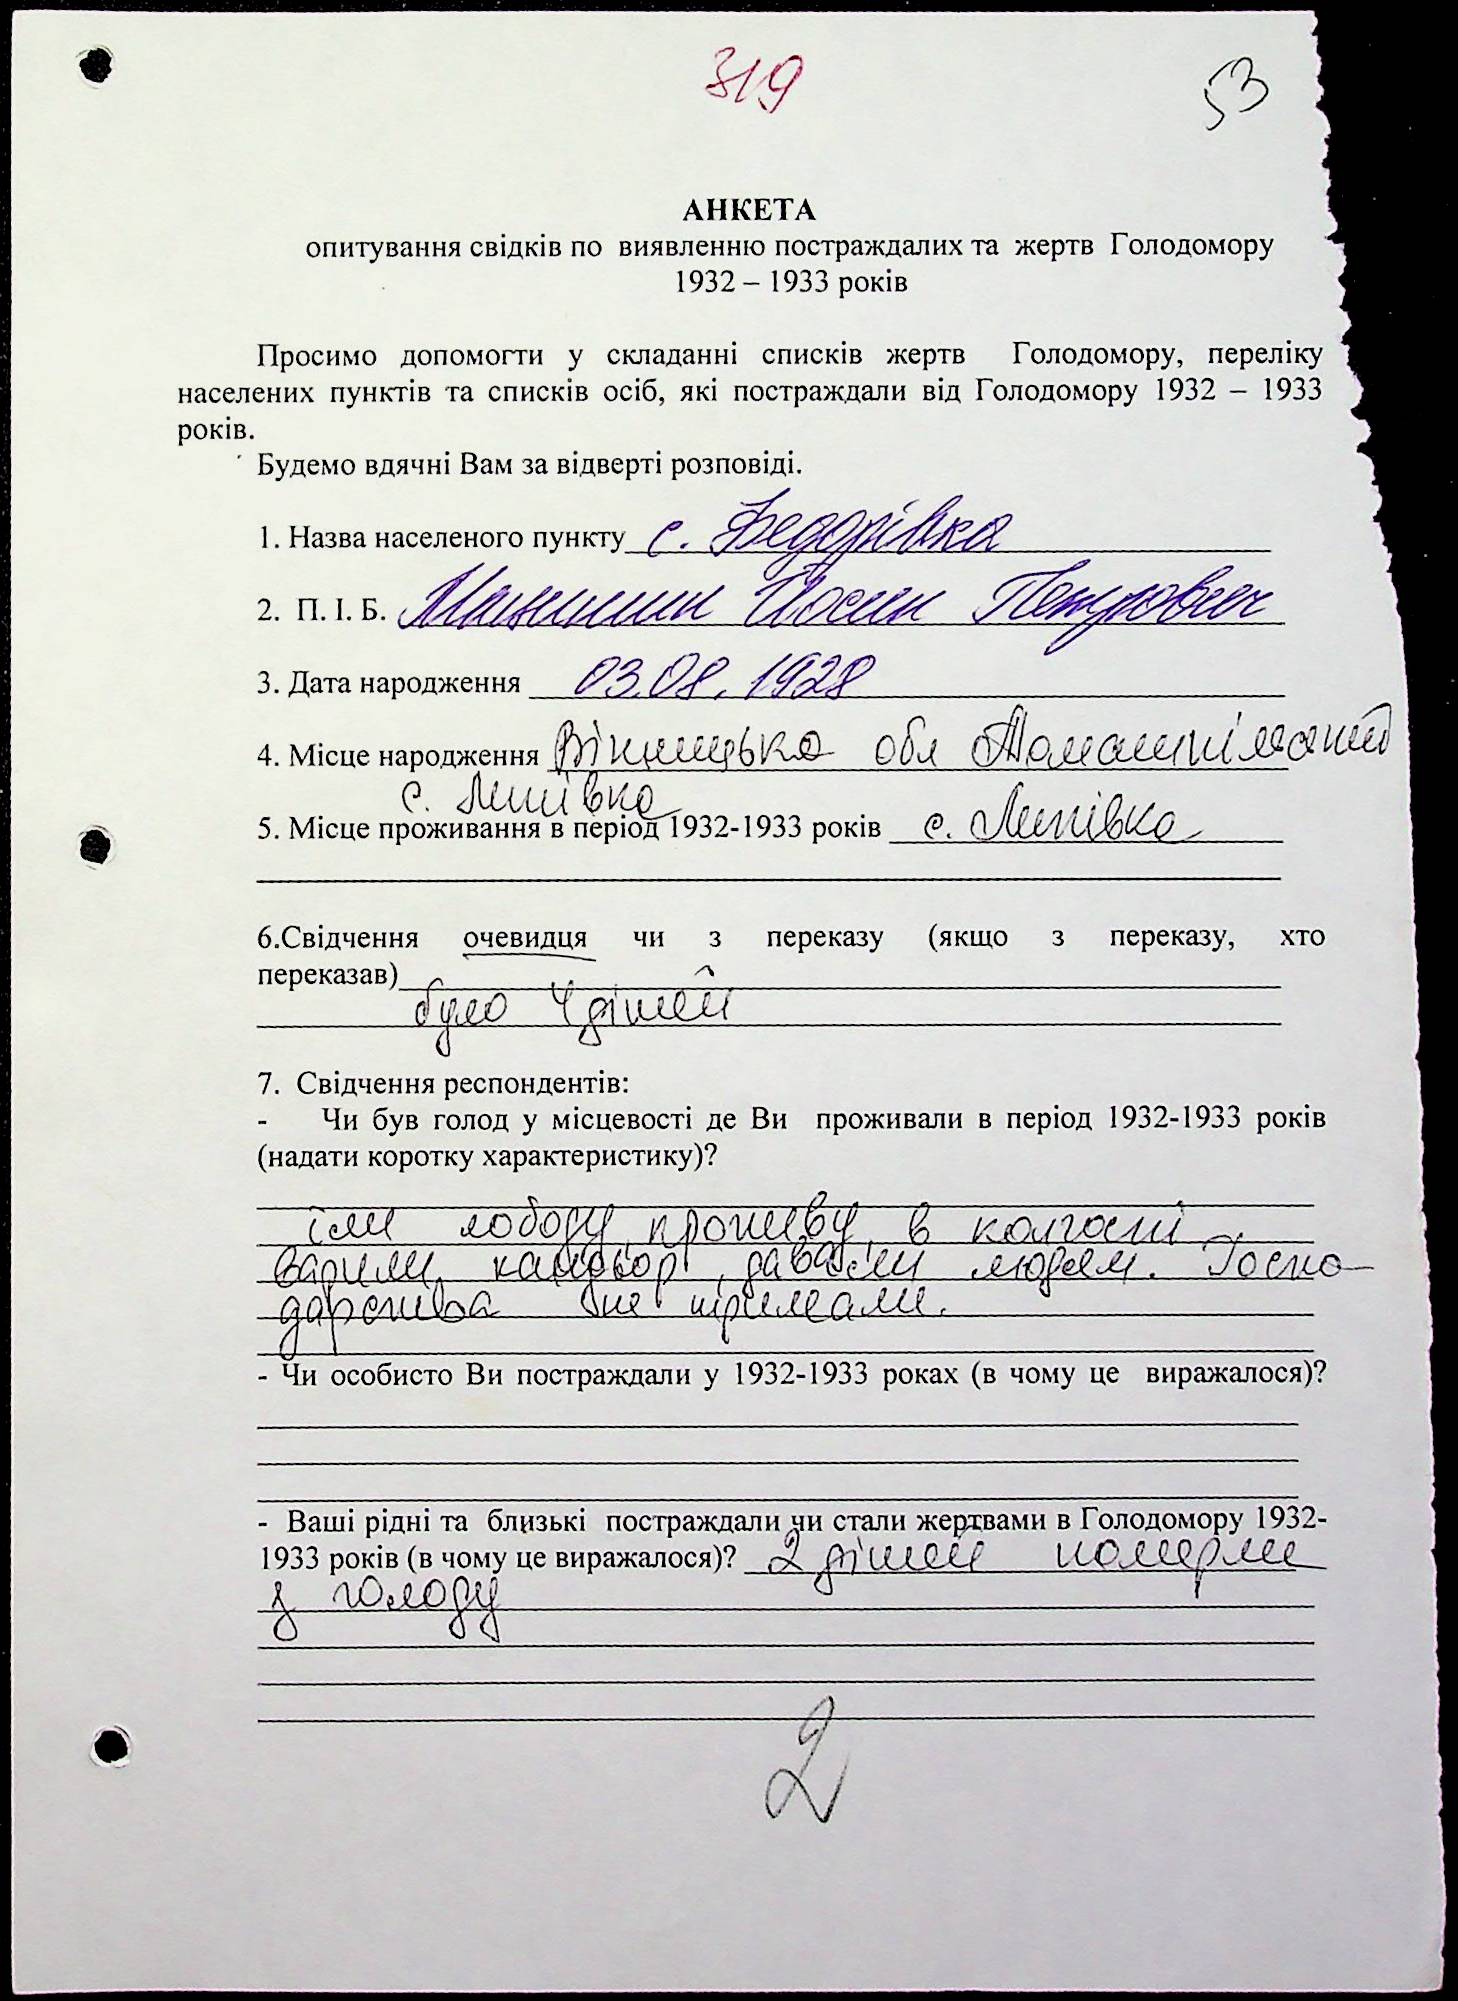 319
53
АНКЕТА
опитування свідків по виявленню постраждалих та жертв Голодомору
1932 – 1933 років
Просимо допомогти у складанні списків жертв Голодомору, переліку
населених пунктів та списків осіб, які постраждали від Голодомору 1932 – 1933
років.
Будемо вдячні Вам за відверті розповіді.
1. Назва населеного пункту с. Федорівка
2. П. І. Б. Йосип Петрович
3. Дата народження 03.08.1928
4. Місце народження Вінницька обл
с. Липівка
5. Місце проживання в період 1932-1933 років с. Липівка
6.Свідчення очевидця чи з переказу (якщо з переказу, хто
переказав)
було 4 дітей
7. Свідчення респондентів:
- Чи був голод у місцевості де Ви проживали в період 1932-1933 років
(надати коротку характеристику)?
їли лободу, кропиву, в колгоспі
варили, давали людям. Госпо-
дарства не тримали.
- Чи особисто Ви постраждали у 1932-1933 роках (в чому це виражалося)?
- Ваші рідні та близькі постраждали чи стали жертвами в Голодомору 1932-
1933 років (в чому це виражалося)? 2 дітей померли
з голоду
2